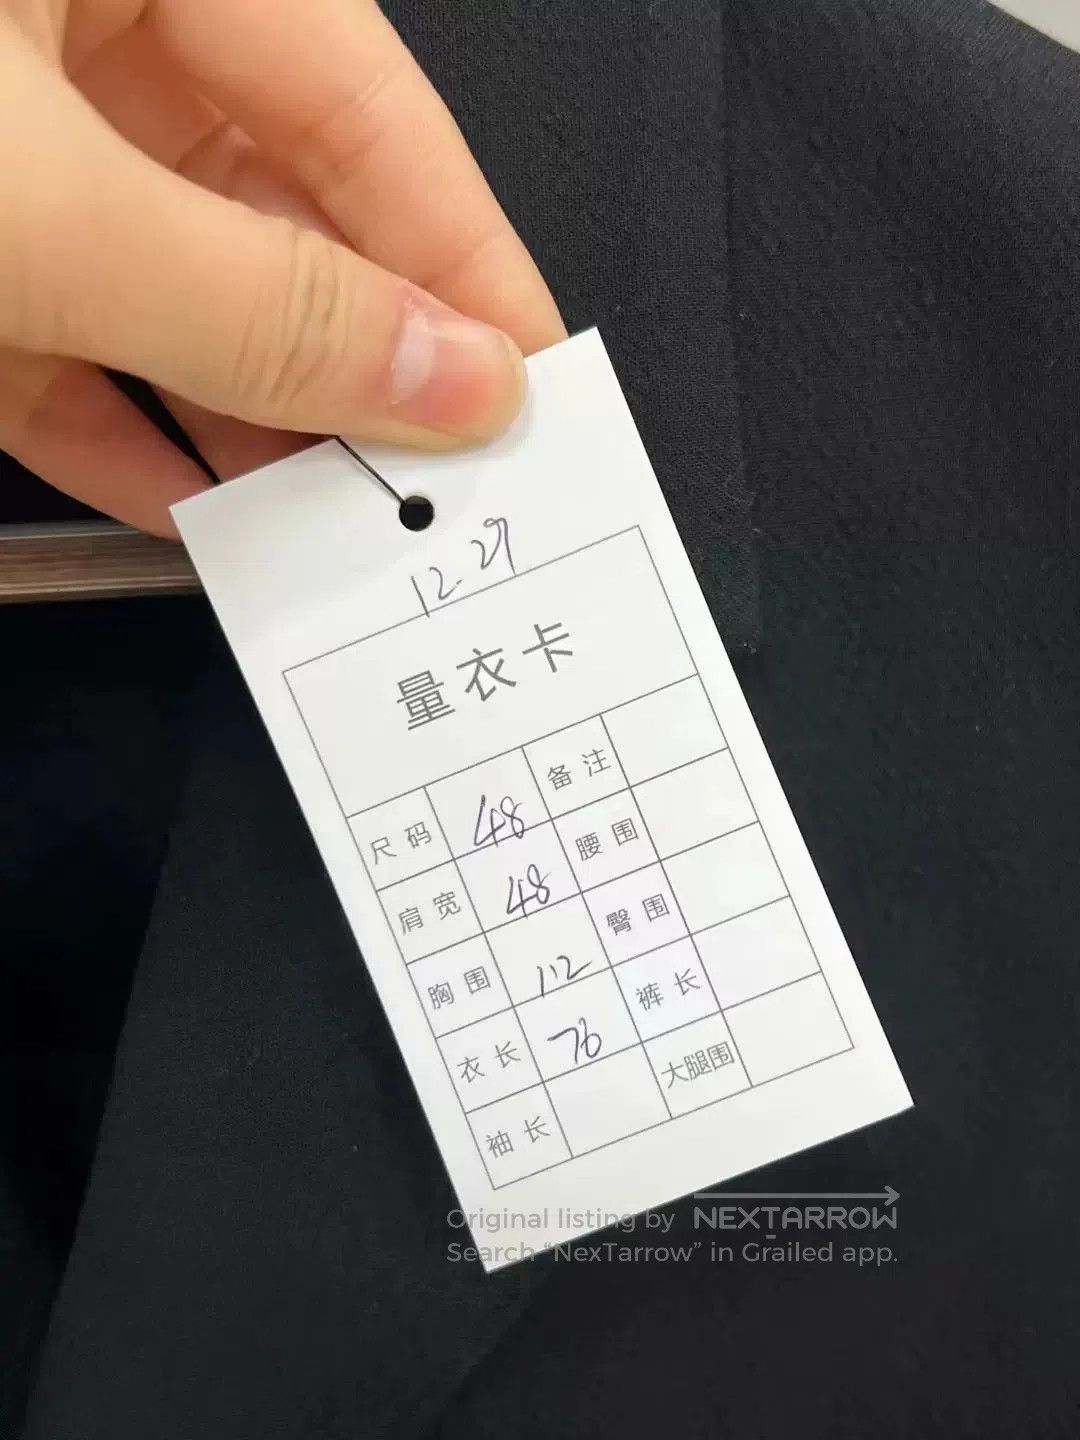 12.29
量衣卡
尺码 48 备注
肩宽 48 腰围
胸围 112 臀围
衣长 76 裤长
袖长 大腿围
Original listing by NEXTARROW
Search “NexTarrow” in Grailed app.